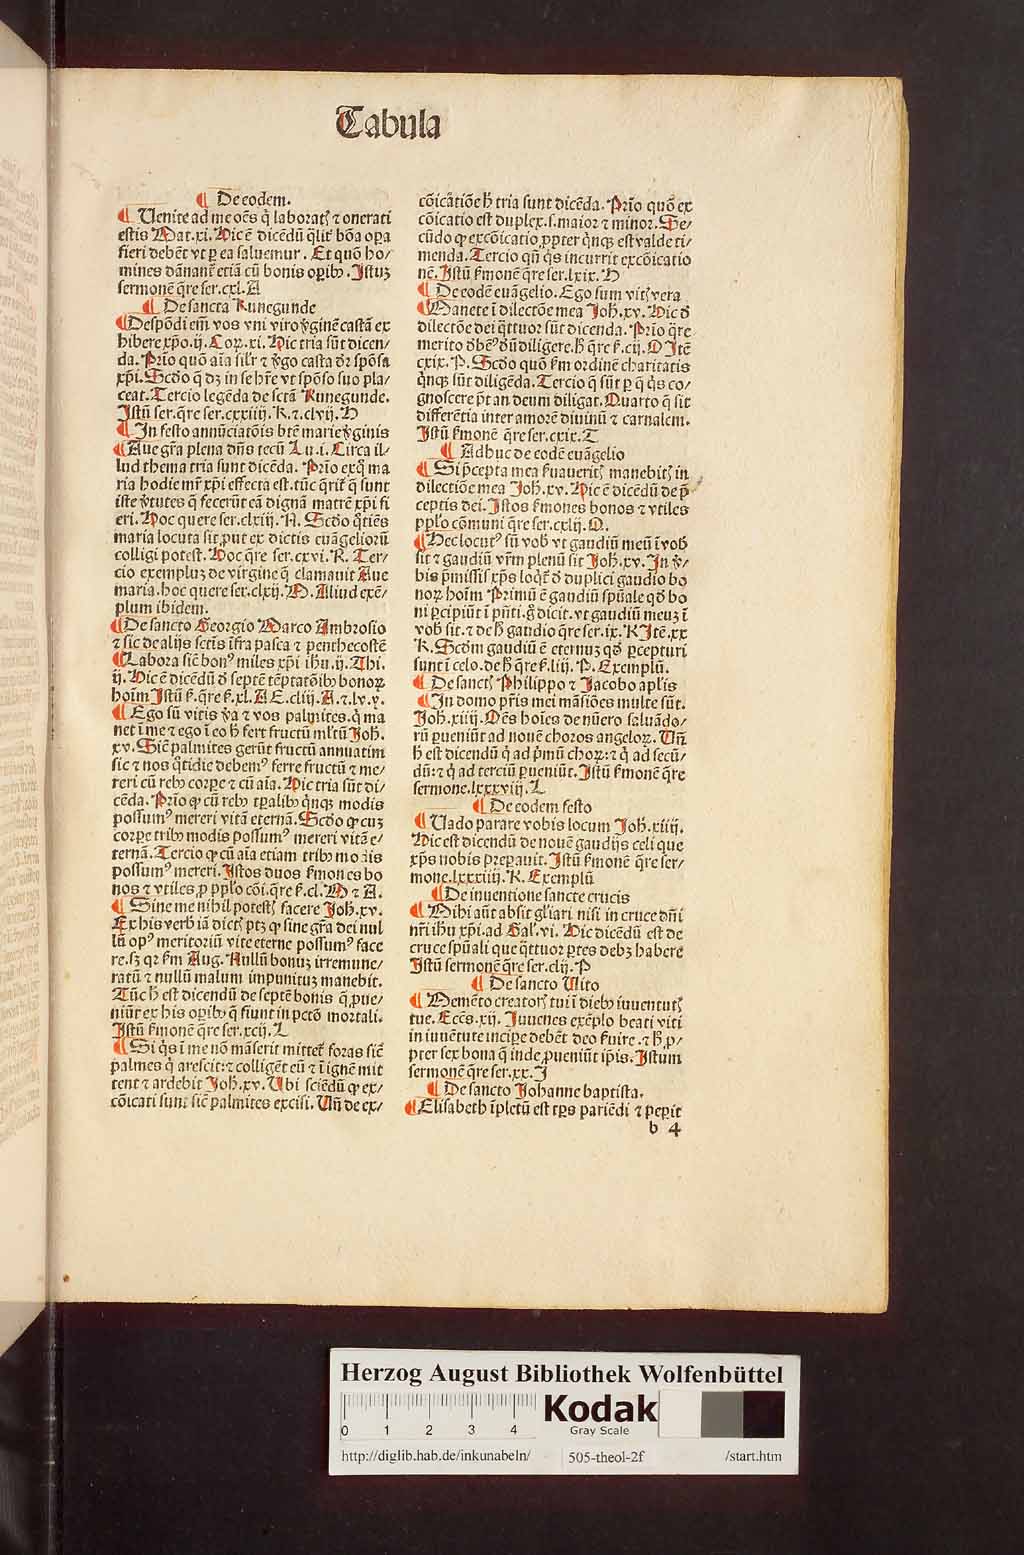 Tabula
¶ De eodem.
¶ Venite ad me oēs q̇ laboratꝭ ⁊ onerati
estis Mat.xi. Hic ē dicēdū q̄litˀ bōa oꝑa
fieri debēt vt ꝑ ea saluemur. Et quō ho/
mines dānanˀ etiā cū bonis oꝑibꝰ. Istuꝫ
sermonē q̄re ser.cxl.A
¶ De sancta Kunegunde
¶ Despōdi em̄ vos vni viro v̓ginē castā ex
hibere xp̄o.ij.Cor.xi. Hic tria sūt dicen/
da. Prīo quō aīa sil̓r ⁊ v̓go casta dr̄ spōsa
xp̄i. Scd̓o q̄ dꝫ in se hr̄e vt spōso suo pla/
ceat. Tercio legēda de sctā Kunegunde.
Istū ser.q̄re ser.cxxiiij.K.⁊.clvij.H
¶ In festo annūciatōis btē marie v̓ginis
¶ Aue gr̄a plena dn̄s tecū Lu.i. Circa il/
lud thema tria sunt dicēda. Prīo exq̄ ma
ria hodie mr̄ xp̄i effecta est. tūc q̄ritˀ q̄ sunt
iste v̓tutes q̄ fecerūt eā dignā matrē xp̄i fi
eri. Hoc quere ser.clxiij.N. Scd̓o q̄tiēs
maria locuta sit ꝓut ex dictis euāgeliorū
colligi potest. Hoc q̄re ser.cxvi.K. Ter/
cio exempluꝫ de virgine q̄ clamauit Aue
maria. hoc quere ser.clxij.M. Aliud exē/
plum ibidem.
¶ De sancto Georgio Marco Ambrosio
⁊ sic de alijs sctīs īfra pasca ⁊ penthecostē
¶ Labora sic̄ bonꝰ miles xp̄i ihu.ij.Thi.
ij. Hic ē dicēdū d̓ septē tēptatōibꝰ bonoꝝ
hoīm Istū ẜ.q̄re ẜ.xl.A E.cliij.A.⁊.lv.v.
¶ Ego sū vitis v̓a ⁊ vos palmites. q̇ ma
net ī me ⁊ ego ī eo h̓ fert fructū ml̓tū Joh̓.
xv. Sic̄ palmites gerūt fructū annuatim
sic ⁊ nos q̄tidie debemꝰ ferre fructū ⁊ me/
reri cū rebꝰ corꝑe ⁊ cū aīa. Hic tria sūt di/
cēda. Prīo ꝙ cū rebꝰ tꝑalibꝰ q̇nqꝫ modis
possumꝰ mereri vitā eternā. Scd̓o ꝙ cuꝫ
corꝑe tribꝰ modis possumꝰ mereri vitā e/
ternā. Tercio ꝙ cū aīa etiam tribꝰ modis
possumꝰ mereri. Istos duos ẜmones bo
nos ⁊ vtiles ꝓ pplo cōi.q̄re ẜ.cl.M ⁊ A.
¶ Sine me nihil potestꝭ facere Joh̓.xv.
Ex his verbꝭ iā dictꝭ ptꝫ ꝙ sine gr̄a dei nul
lū opꝰ meritoriū vite eterne possumꝰ face
re. sꝫ qꝛ ẜm Aug. Nullū bonuꝫ irremune/
ratū ⁊ nullū malum impunituꝫ manebit.
Tūc h̓ est dicendū de septē bonis q̄ ꝓue/
niūt ex his oꝑibꝰ q̄ fiunt in pctō mortali.
Istū ẜmonē q̄re ser.xcij.L
¶ Si q̇s ī me nō māserit mittetˀ foras sic̄
palmes q̇ arescit:⁊ colligēt eū ⁊ ī ignē mit
tent ⁊ ardebit Joh̓.xv. Ubi sciēdū ꝙ ex/
cōicati sunt sic̄ palmites excisi. Un̄ de ex/
cōicatiōe h̓ tria sunt dicēda. Prīo quō ex
cōicatio est duplex.s.maior ⁊ minor. Se/
cūdo ꝙ excōicatio ꝓpter q̇nqꝫ est valde ti/
menda. Tercio qn̄ q̇s incurrit excōicatio
nē. Istū ẜmonē q̄re ser.lxix.H
¶ De eodē euāgelio. Ego sum vitꝭ vera
¶ Manete ī dilectōe mea Joh̓.xv. Hic d̓
dilectōe dei q̄ttuor sūt dicenda. Prīo q̄re
merito d̓bēꝰ dn̄ū diligere. h̓ q̄re ẜ.cij.O Itē
cxix.P. Scd̓o quō ẜm ordinē charitatis
q̇nqꝫ sūt diligēda. Tercio q̄ sūt ꝑ q̄ q̇s co/
gnoscere pt̄ an deum diligat. Quarto q̄ sit
differētia inter amorē diuinū ⁊ carnalem.
Istū ẜmonē q̄re ser.cxix.T
¶ Adhuc de eodē euāgelio
¶ Si p̄cepta mea ẜuaueritꝭ manebitꝭ in
dilectiōe mea Joh̓.xv. Hic ē dicēdū de p̄
ceptis dei. Istos ẜmones bonos ⁊ vtiles
pplo cōmuni q̄re ser.cxlij.O.
¶ Hec locutꝰ sū vob̓ vt gaudiū meū ī vob̓
sit ⁊ gaudiū vr̄m plenū sit Joh̓.xv. In v̓/
bis p̄missis xp̄s loq̄tˀ d̓ duplici gaudio bo
noꝝ hoīm Primū ē gaudiū spūale qd̓ bo
ni ꝑcipiūt ī pn̄ti. g̓ dicit. vt gaudiū meuꝫ ī
vob̓ sit. ⁊ de h̓ gaudio q̄re ser.ix.K Itē.xx
K. Scd̓m gaudiū ē eternuꝫ qd̓ ꝑcepturi
sunt ī celo. de h̓ q̄re ẜ.liij.P. Exemplū.
¶ De sanctꝭ Philippo ⁊ Jacobo apl̓is
¶ In domo pr̄is mei māsiōes multe sūt.
Joh̓.xiiij. Oēs hoīes de nūero saluādo/
rū ꝑueniūt ad nouē choros angeloꝝ. Un̄
h̓ est dicendū q̇ ad p̄mū choꝝ:⁊ q̇ ad secū/
dū:⁊ q̇ ad terciū ꝑueniūt. Istū ẜmonē q̄re
sermone.lxxxviij.L
¶ De eodem festo
¶ Uado parare vobis locum Joh̓.xiiij.
Hic est dicendū de nouē gaudijs celi que
xp̄s nobis preꝑauit. Istū ẜmonē q̄re ser/
mone.lxxxiiij.K. Exemplū
¶ De inuentione sancte crucis
¶ Mihi aūt absit gl̓iari nisi in cruce dn̄i
nr̄i ihu xp̄i.ad Gal̓.vi. Hic dicēdū est de
cruce spūali que q̄ttuor ꝑtes debꝫ habere
Istū sermonē q̄re ser.clij.P
¶ De sancto Uito
¶ Memēto creatorꝭ tui ī diebꝰ iuuentutꝭ
tue. Eccs.xij. Juuenes exēplo beati viti
in iuuētute inciꝑe debēt deo ẜuire.⁊ h̓ ꝓ/
pter sex bona q̄ inde ꝓueniūt ip̄is. Istum
sermonē q̄re ser.xx.I
¶ De sancto Johanne baptista.
¶ Elisabeth īpletū est tp̄s pariēdi ⁊ peꝑit
b 4
Herzog August Bibliothek Wolfenbüttel
0 1 2 3 4
Kodak
Gray Scale
http://diglib.hab.de/inkunabeln/ 505-theol-2f /start.htm